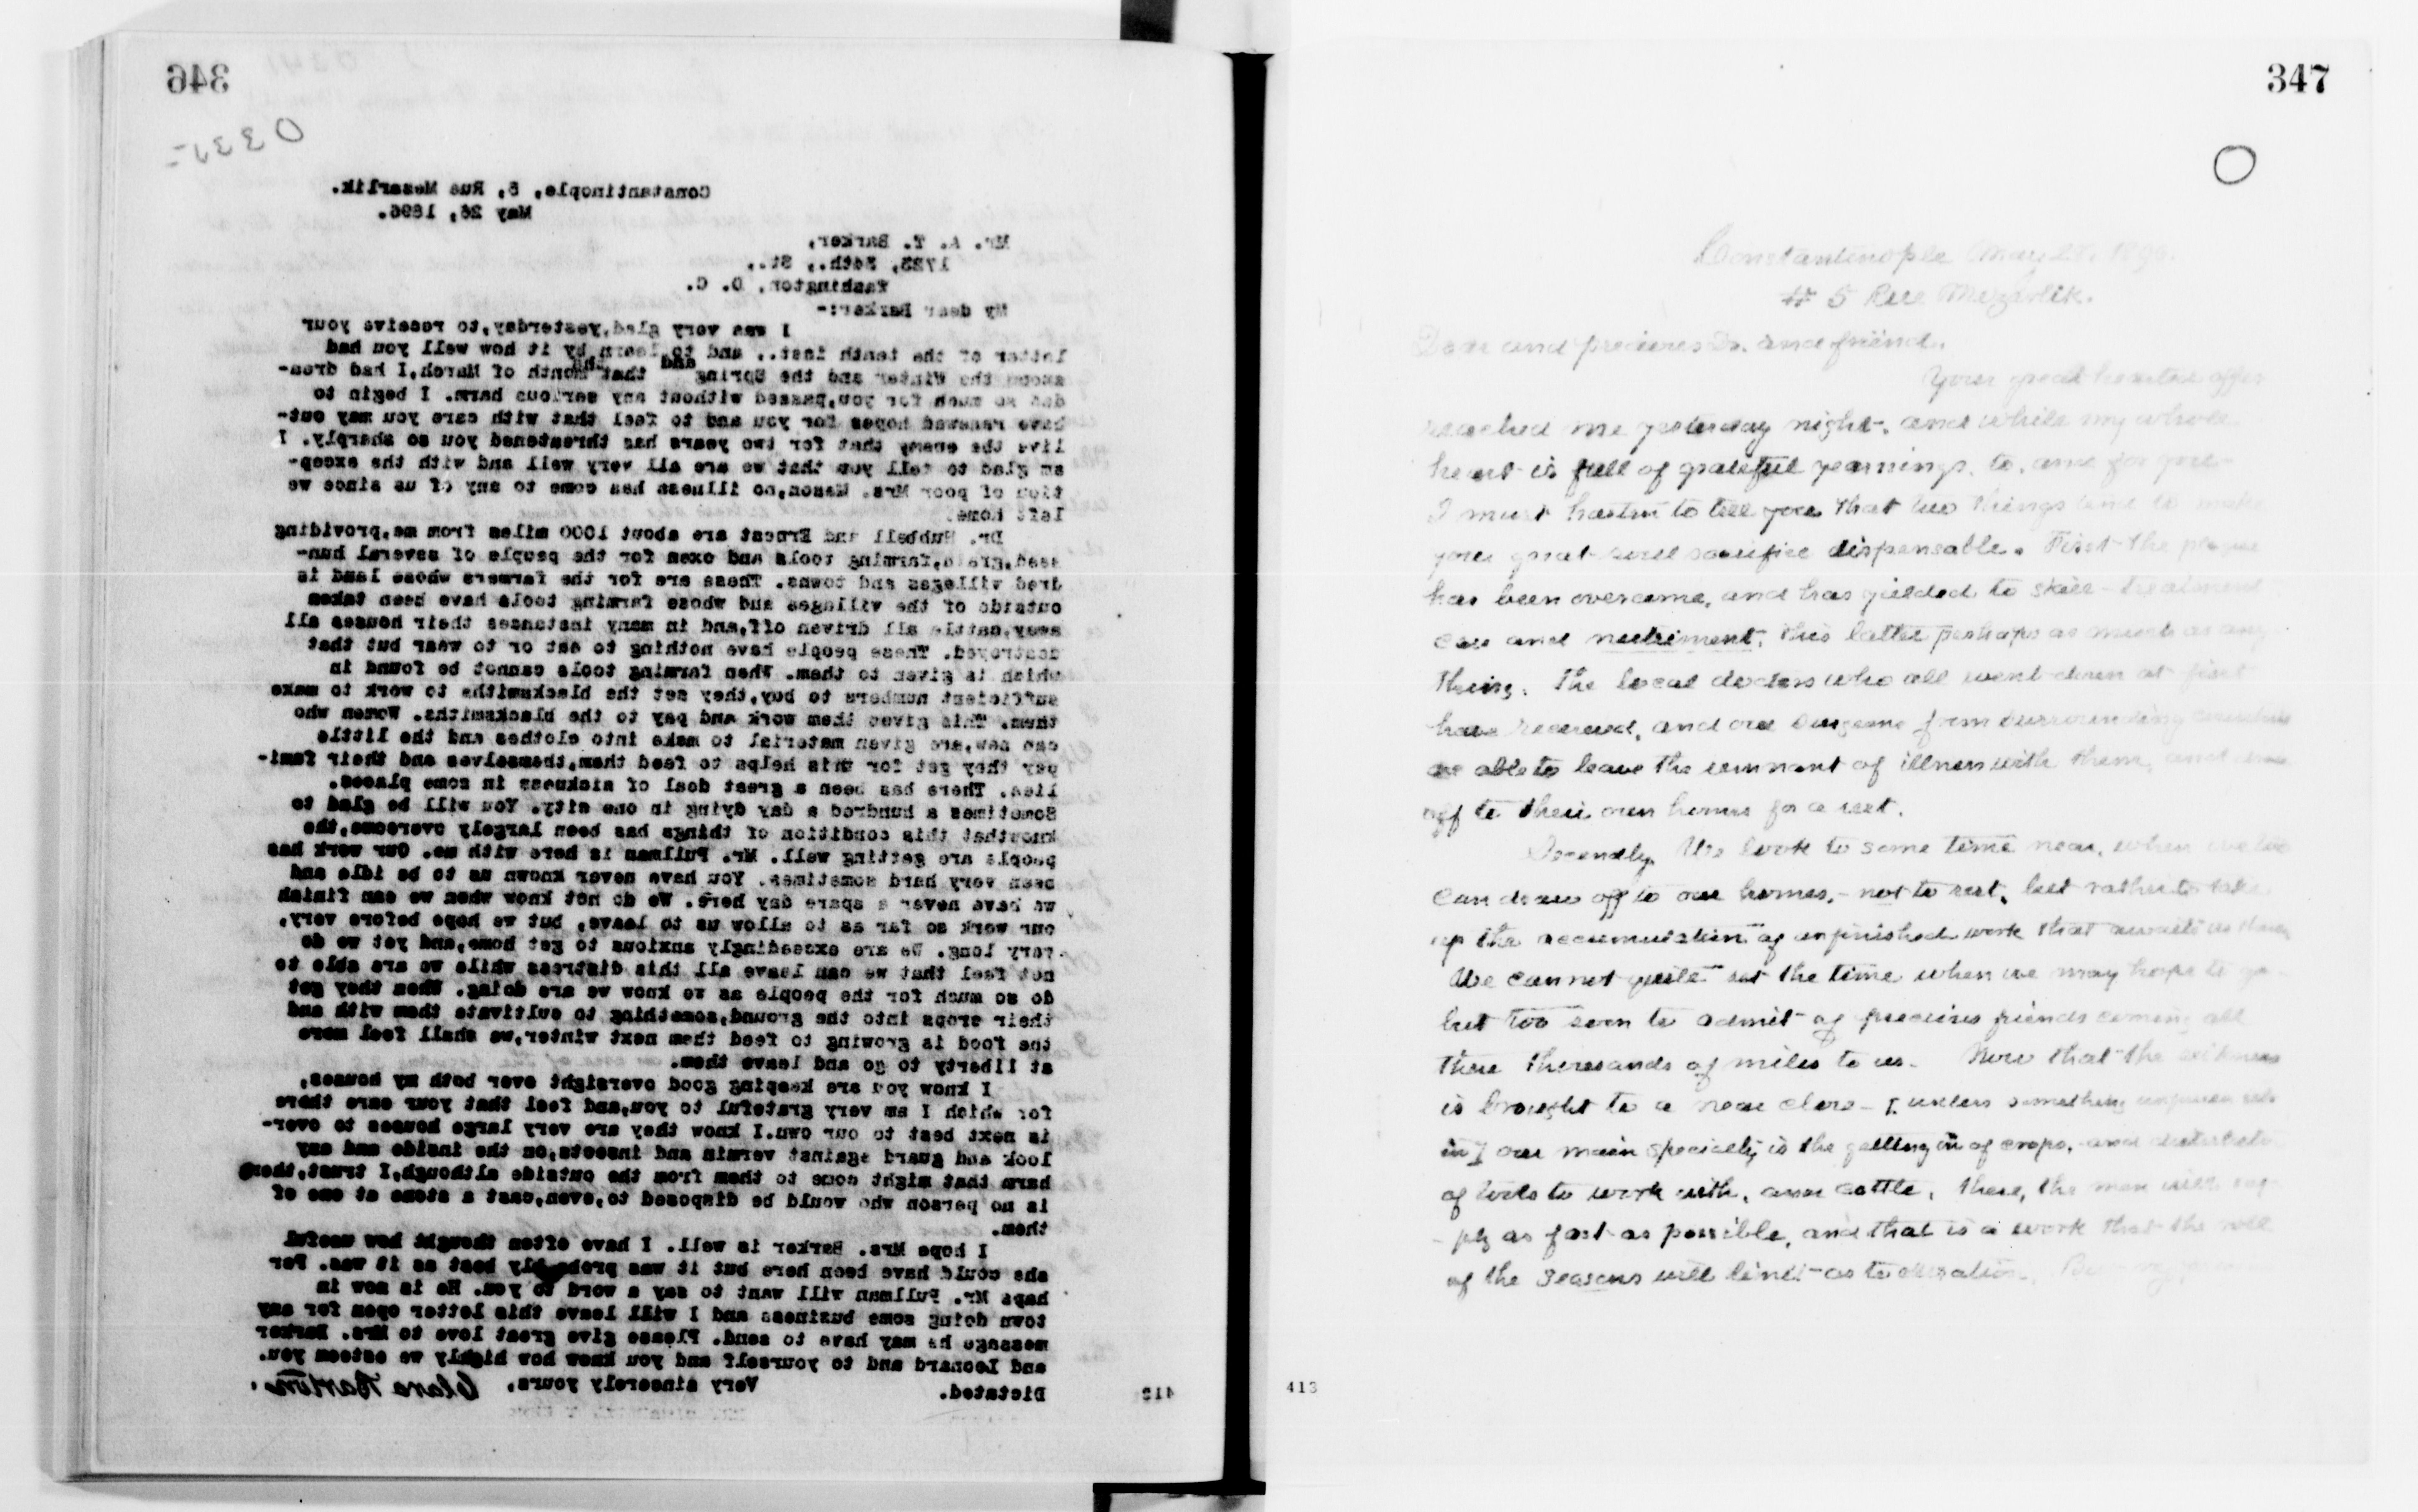 346
Constantinople, 5, Rue Mezarlik.
May 26, 1896.
Mr. A. T. Barker,
Washington, D. C.
My dear Barker:-
I was very glad,yesterday,to receive your
letter of the tenth inst., and to learn by it how well you had
the Winter and the Spring and that month of March,I had drea-
ded so much for you,passed without any serious harm. I begin to
have renewed hopes for you and to feel that with care you may out-
live the enemy that for two years has threatened you so sharply. I
am glad to tell you that we are all very well and with the excep-
tion of poor Mrs. Mason,no illness has come to any of us since we
left home.
Dr. Hubbell and Ernest are about 1000 miles from me,providing
seed,grain,farming tools and oxen for the people of several hun-
dred villages and towns. These are for the farmers whose land is
outside of the villages and whose farming tools have been taken
away,cattle all driven off,and in many instances their houses all
destroyed. These people have nothing to eat or to wear but that
which is given to them. When farming tools cannot be found in
sufficient numbers to buy,they set the blacksmiths to work to make
them. This gives them work and pay to the blacksmiths. Women who
can sew,are given material to make into clothes and the little
pay they get for this helps to feed them,themselves and their fami-
lies. There has been a great deal of sickness in some places.
Sometimes a hundred a day dying in one city. You will be glad to
knowthat this condition of things has been largely overcome,the
people are getting well. Mr. Pullman is here with me. Our work has
been very hard sometimes. You have never known us to be idle and
we have never a spare day here. We do not know when we can finish
our work so far as to allow us to leave, but we hope before very,
very long. We are exceedingly anxious to get home,and yet we do
not feel that we can leave all this distress while we are able to
do so much for the people as we know we are doing. When they get
their crops into the ground,something to cultivate them with and
the food is growing to feed them next winter,we shall feel more
at liberty to go and leave them.
I know you are keeping good oversight over both my houses,
for which I am very grateful to you,and feel that your care there
is next best to our own.I know they are very large houses to over-
look and guard against vermin and insects,on the inside and any
harm that might come to them from the outside although,I trust,there
is no person who would be disposed to,even,cast a stone at one of
them.
I hope Mrs. Barker is well. I have often thought how useful
she could have been here but it was probably best as it was. Per
haps Mr. Pullman will want to say a word to you. He is now in
town doing some business and I will leave this letter open for any
message he may have to send. Please give great love to Mrs. Barker
and Leonard and to yourself and you know how highly we esteem you.
Very sincerely yours, Clara Barton.
Dictated.
412
347
Constantinople May
# 5 Rue Mezarlik.
Dear and precious Dr. and friend.
Your great hearted offer
reached me yesterday night, and while my whole
heart is full of grateful yearnings, to, and for you
I must hasten to tell you that two things tend to make
your great soul sacrifice dispensable. First the plague
has been overcome, and has yielded to skill - treatment
care and nutriment, this latter perhaps as much as any
thing. The local doctors who all went down at first
have recovered, and our surgeons from surrounding countries
are able to leave the remnant of illness with them, and
off to their own homes for a rest.
Secondly. We look to some time near, when we too
can draw off to our homes, - not to rest, but rather to take
up the accumulation of unfinished work that awaits us there
We cannot quite set the time when we may hope to go
but too soon to admit of precious friends coming all
these thousands of miles to us. Now that the sickness
is brought to a near close - unless something
in our main specialty is the getting in of crops, and
of tools to work with, and cattle, these, the men will sup-
- ply as fast as possible, and that is a work that the roll
of the seasons will limit as to duration.
413